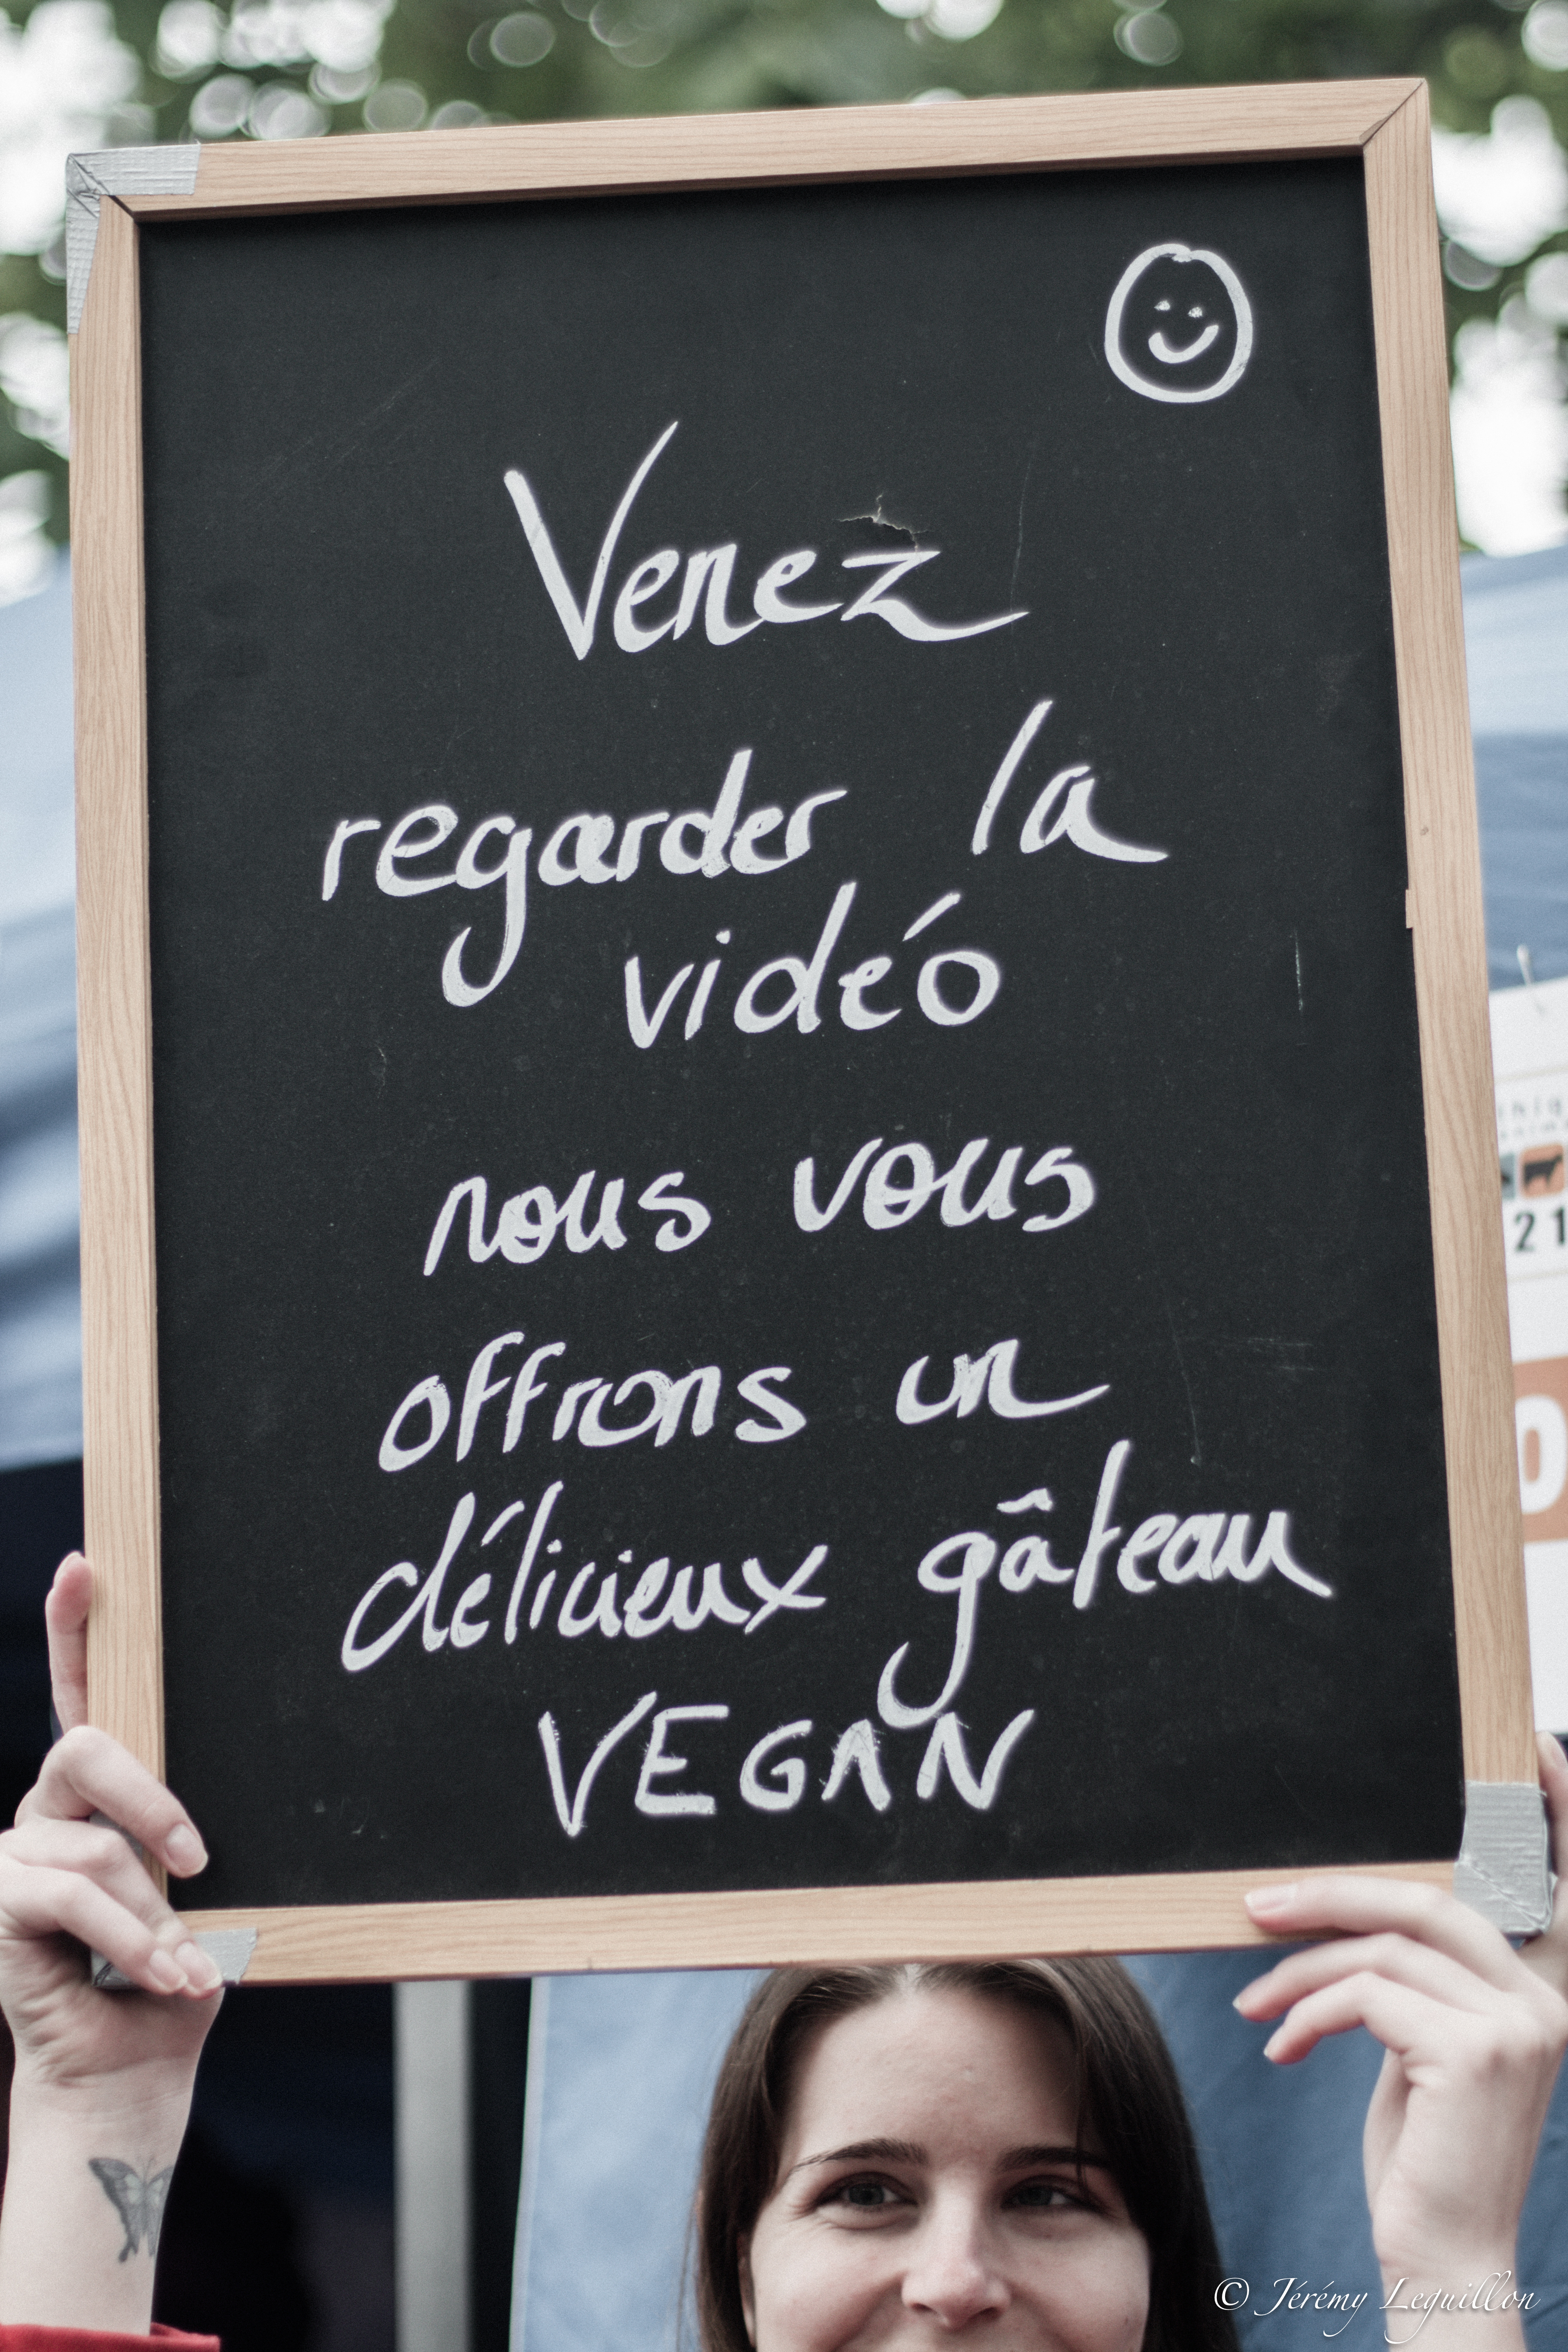 Venez
regarder la
vidéo
nous vous
offrons un
délicieux gâteau
VEGAN
21
© Jérémy Leguillon